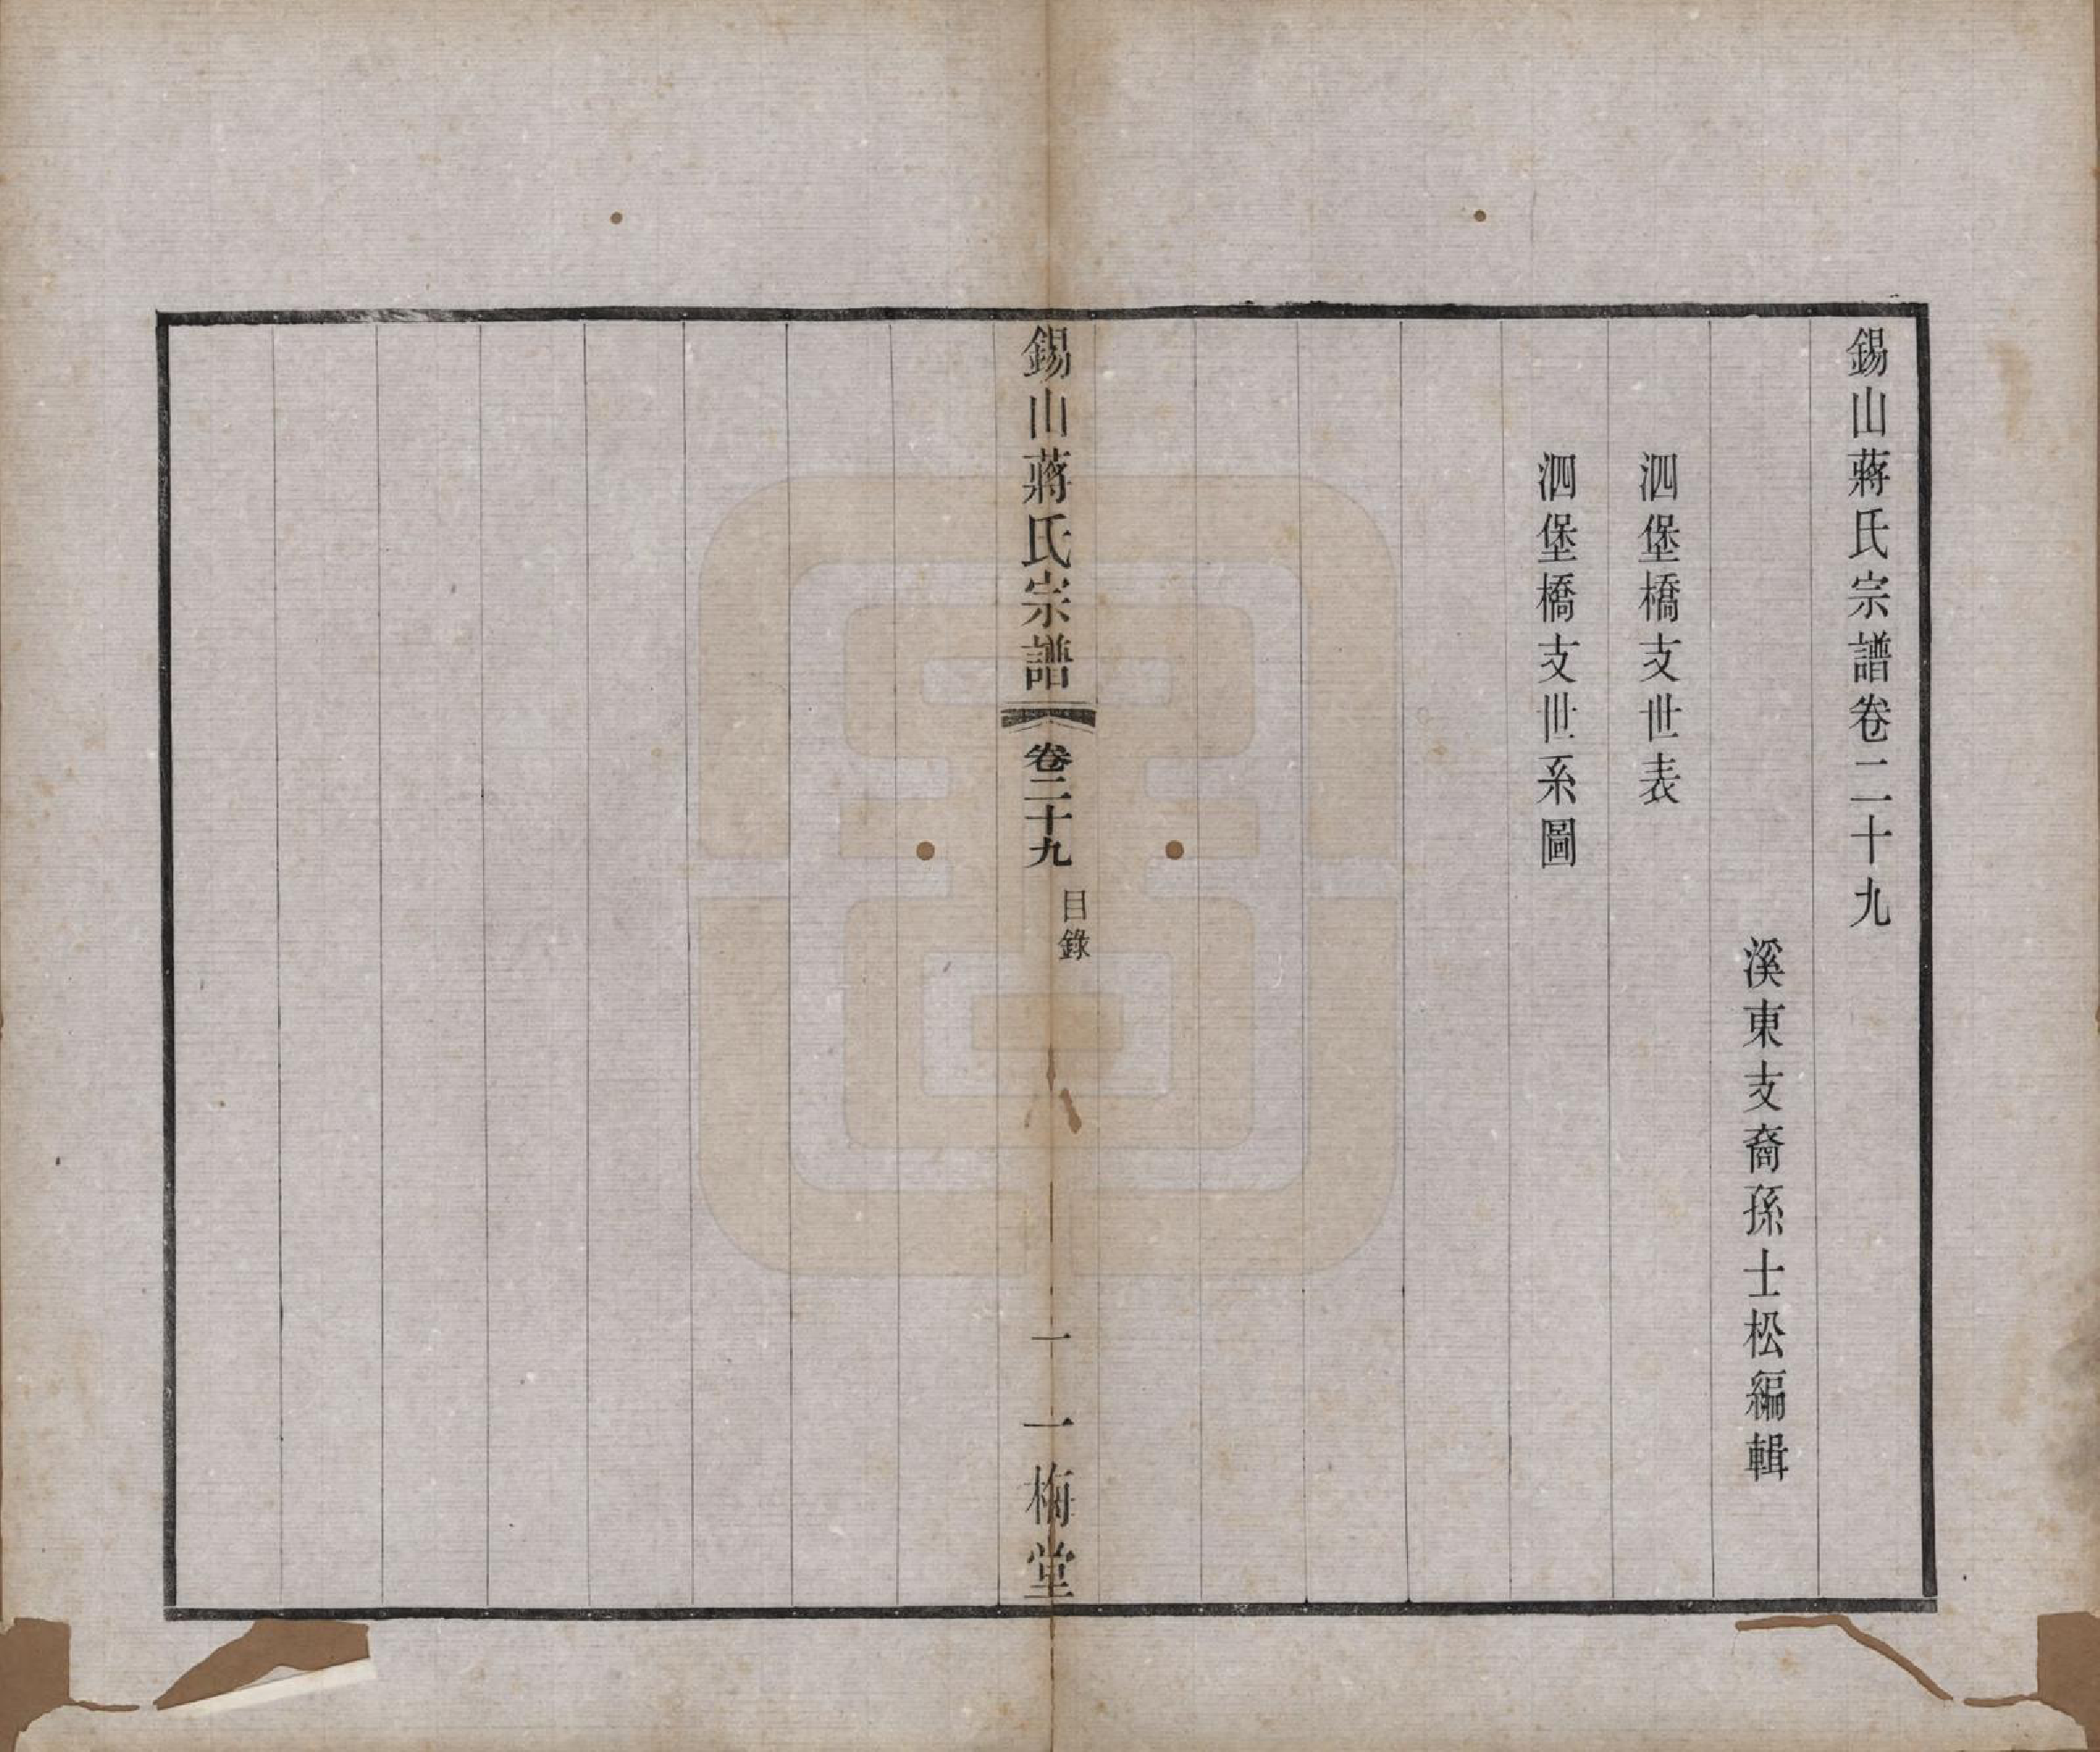 錫山蔣氏宗譜卷二十九
溪東支裔孫士松編輯
泗堡橋支世表
泗堡橋支世系圖
錫山蔣氏宗譜
卷二十九
目錄
一
一梅堂